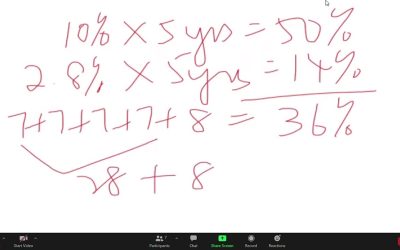 10% × 5 yrs = 50%
2.8% × 5 yrs = 14%
7+7+7+7+8 = 36%
28 + 8
Start Video
Participants
Chat
Share Screen
Record
Reactions